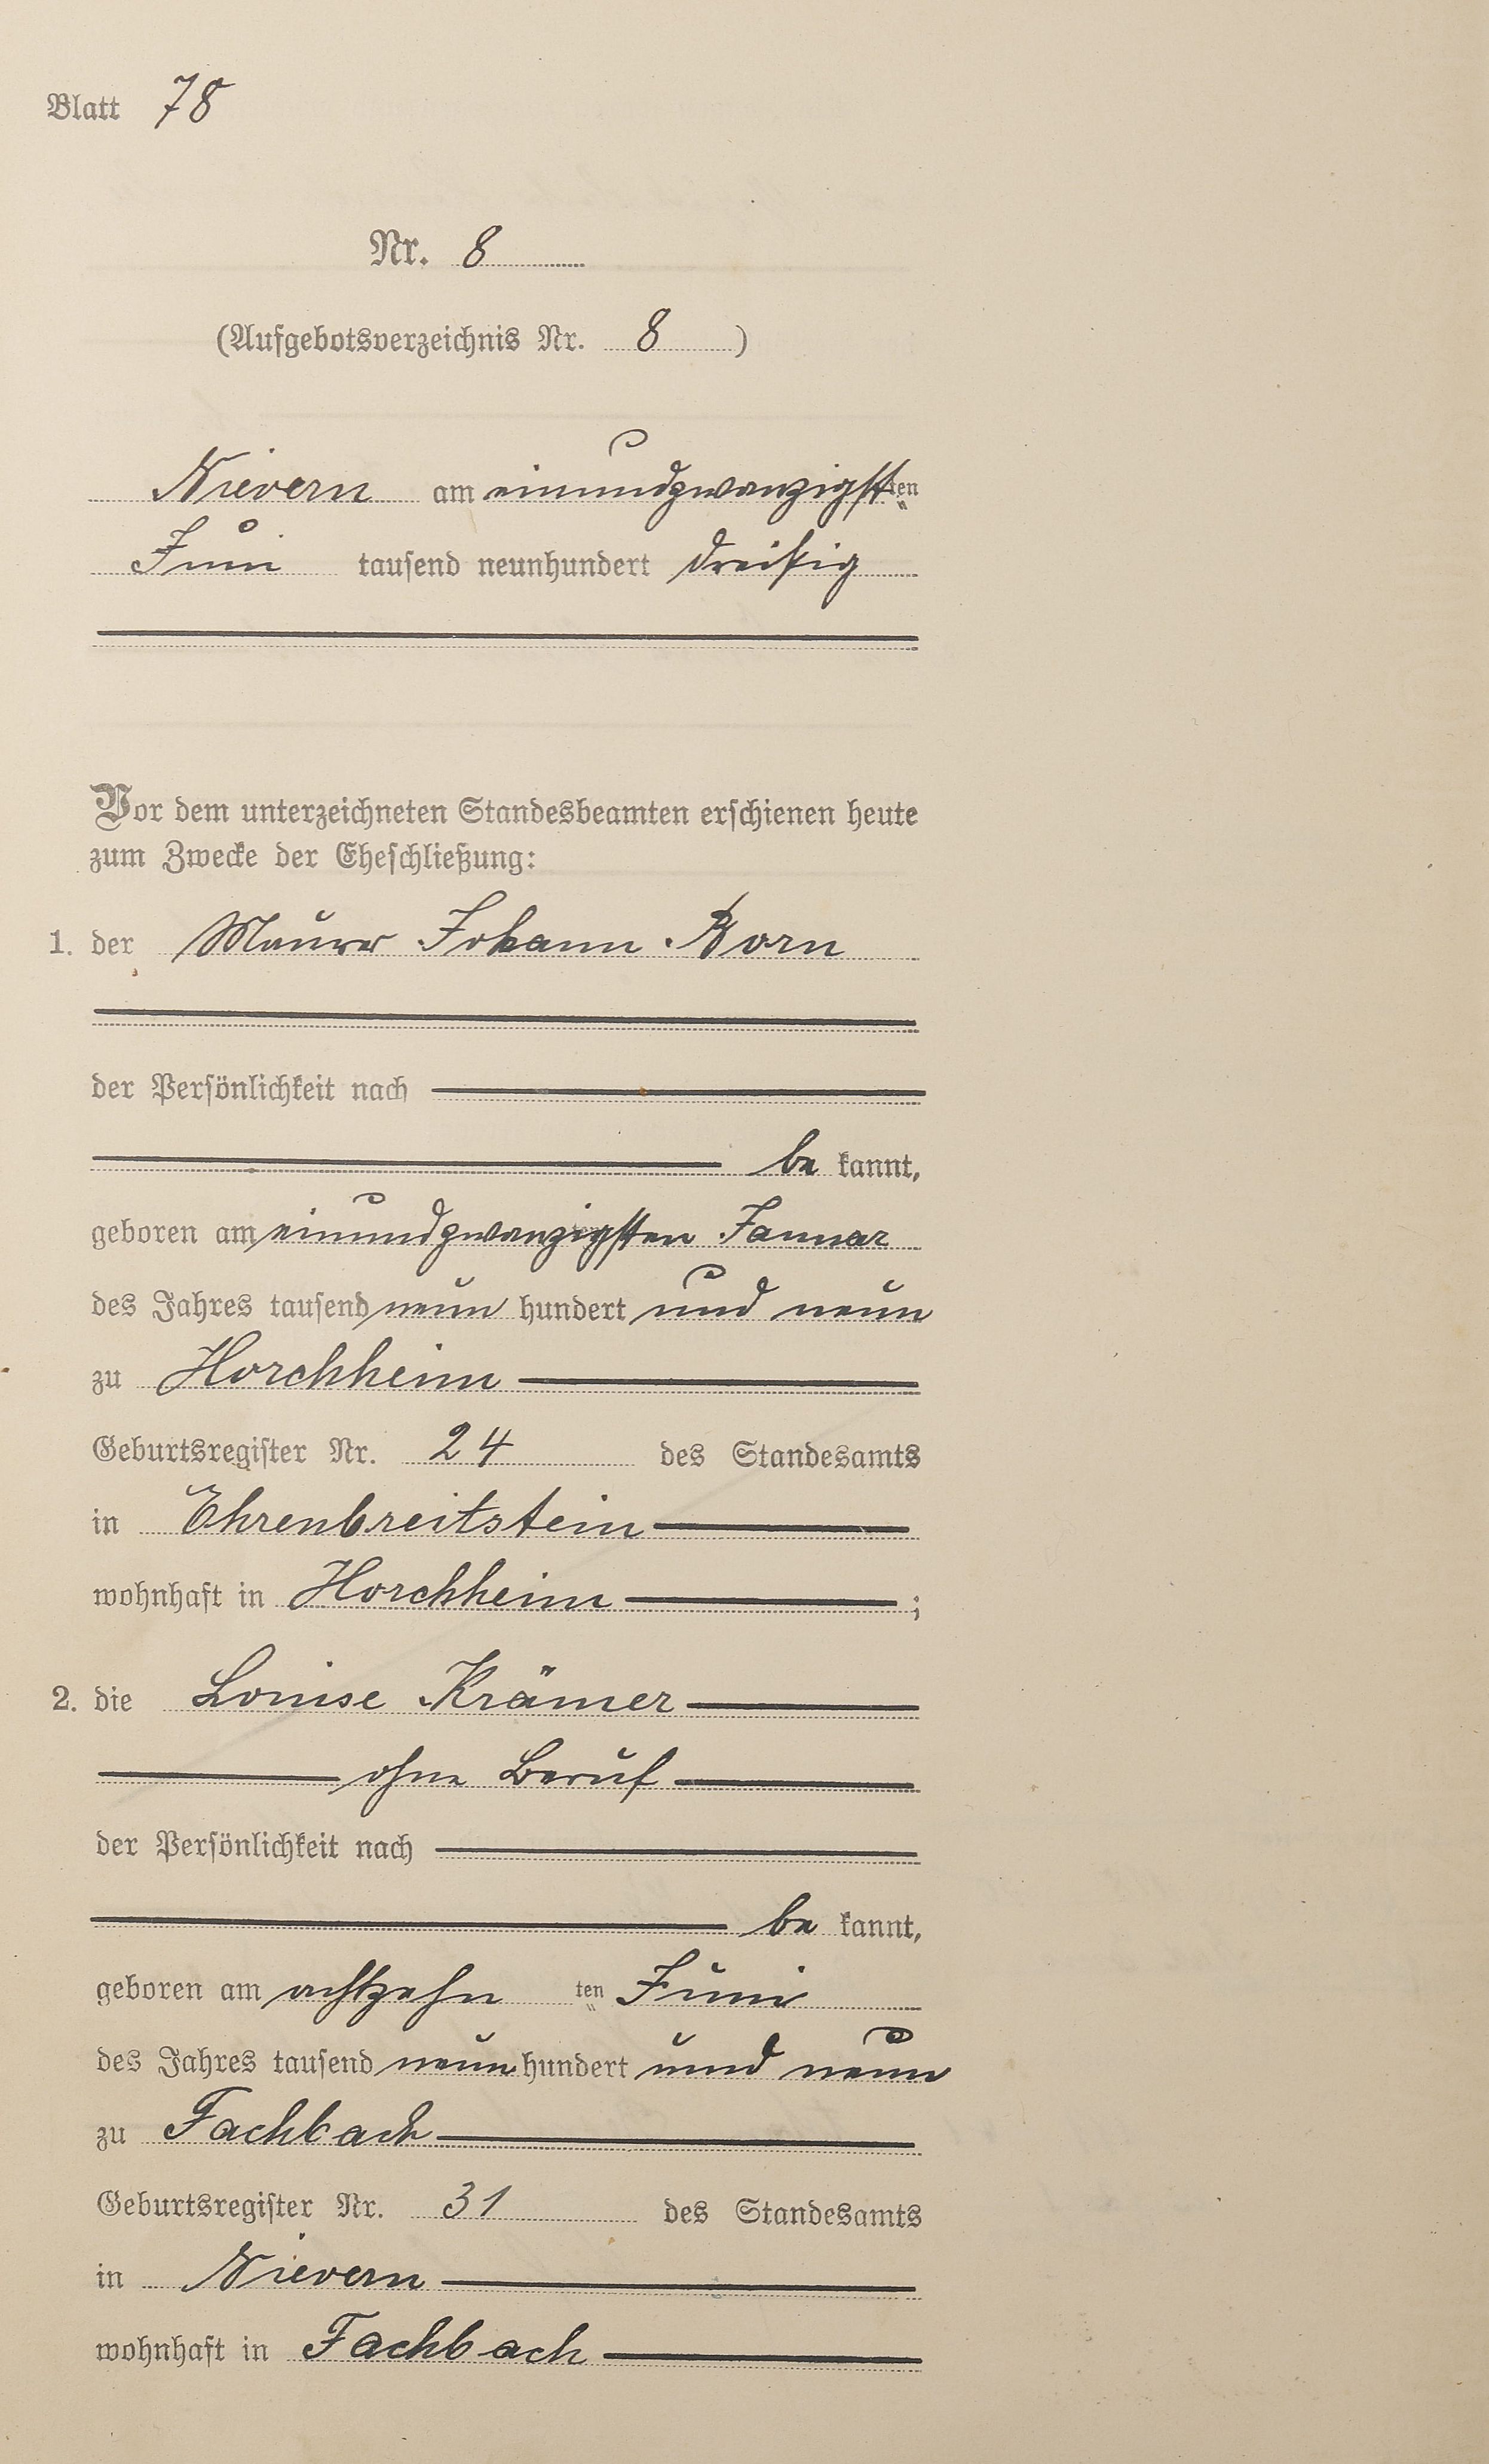 Blatt 78
Nr. 8
(Aufgebotsverzeichnis Nr. 8)
Nievern am einundzwanzigsten
Juni tausend neunhundert dreißig
Vor dem unterzeichneten Standesbeamten erschienen heute
zum Zwecke der Eheschließung:
1. der Maurer Johann Born
der Persönlichkeit nach
be kannt,
geboren am einundzwanzigsten Januar
des Jahres tausend neun hundert und neun
zu Horchheim
Geburtsregister Nr. 24 des Standesamts
in Ehrenbreitstein
wohnhaft in Horchheim ;
2. die Louise Krämer
ohne Beruf
der Persönlichkeit nach
be kannt,
geboren am achtzehn ten Juni
des Jahres tausend neun hundert und neun
zu Fachbach
Geburtsregister Nr. 31 des Standesamts
in Nievern
wohnhaft in Fachbach